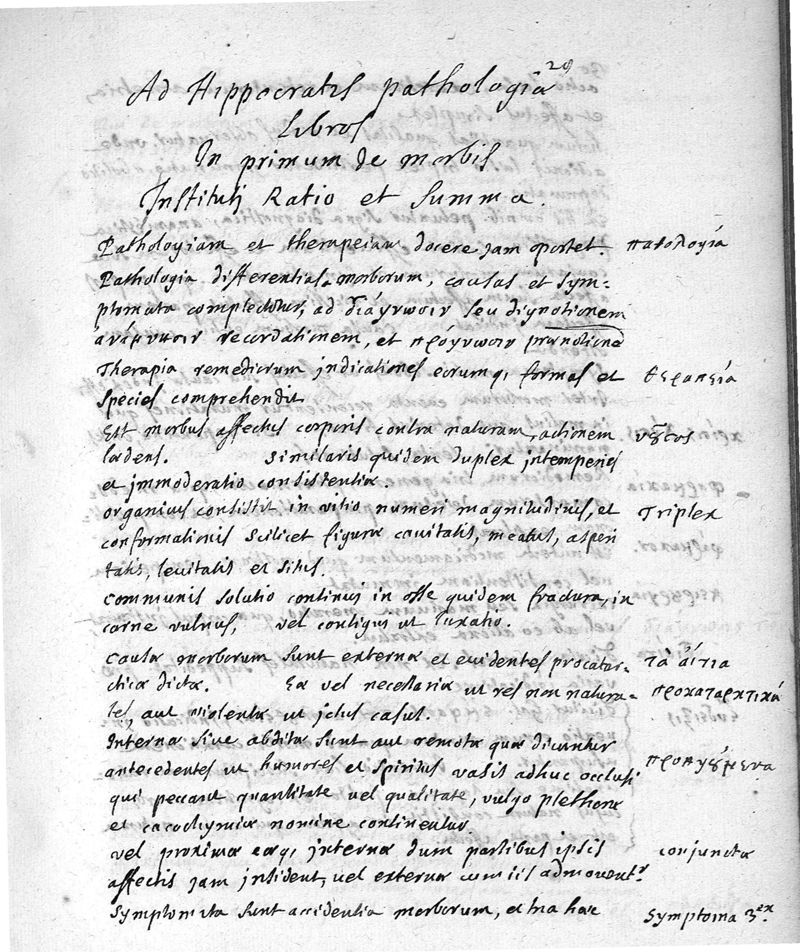 Ad Hippocratis pathologia
Libros
In primum de morbis
Instituti Ratio et Summa.
Pathologiam et therapeiam docere jam oportet. παθολογία
Pathologia differentias morborum, causas et sym-
ptomata complectitur, ad διάγνωσιν seu dignotionem
ἀνάμνησιν recordationem, et πρόγνωσιν prænotione
Therapia remediorum indicationes eorumq, formas et θεραπεία
species comprehendit
Est morbus affectus corporis contra naturam, actionem νȣ̃σος
lædens. Similaris quidem duplex intemperies
et immoderatio consistentiæ.
organicus consistit in vitio numeri magnitudinis, et Triplex
conformationis scilicet figuræ cavitatis, meatus, asperi
tatis, levitatis et situs.
communis solutio continui in osse quidem fractura, in
carne vulnus, vel contigui ut luxatio.
Causæ morborum sunt externæ et evidentes procatar- τὰ ἄιτια
cticæ dictæ. Eæ vel necessariæ ut res non natura- προκαταρκτικά
les, aut violentæ ut ictus casus.
Internæ sive abditæ sunt aut remotæ quæ dicuntur
antecedentes ut humores et spiritus vasis adhuc occlusi προηγȣ́μενα
qui peccant quantitate vel qualitate, vulgo plethoræ
et cacochymiæ nomine continentur
vel proximæ eæq, internæ dum partibus ipsis conjunctæ
affectis jam insident, vel externæ cum iis admoventr
Symptomata sunt accidentia morborum, et hac Symptoma 3ex